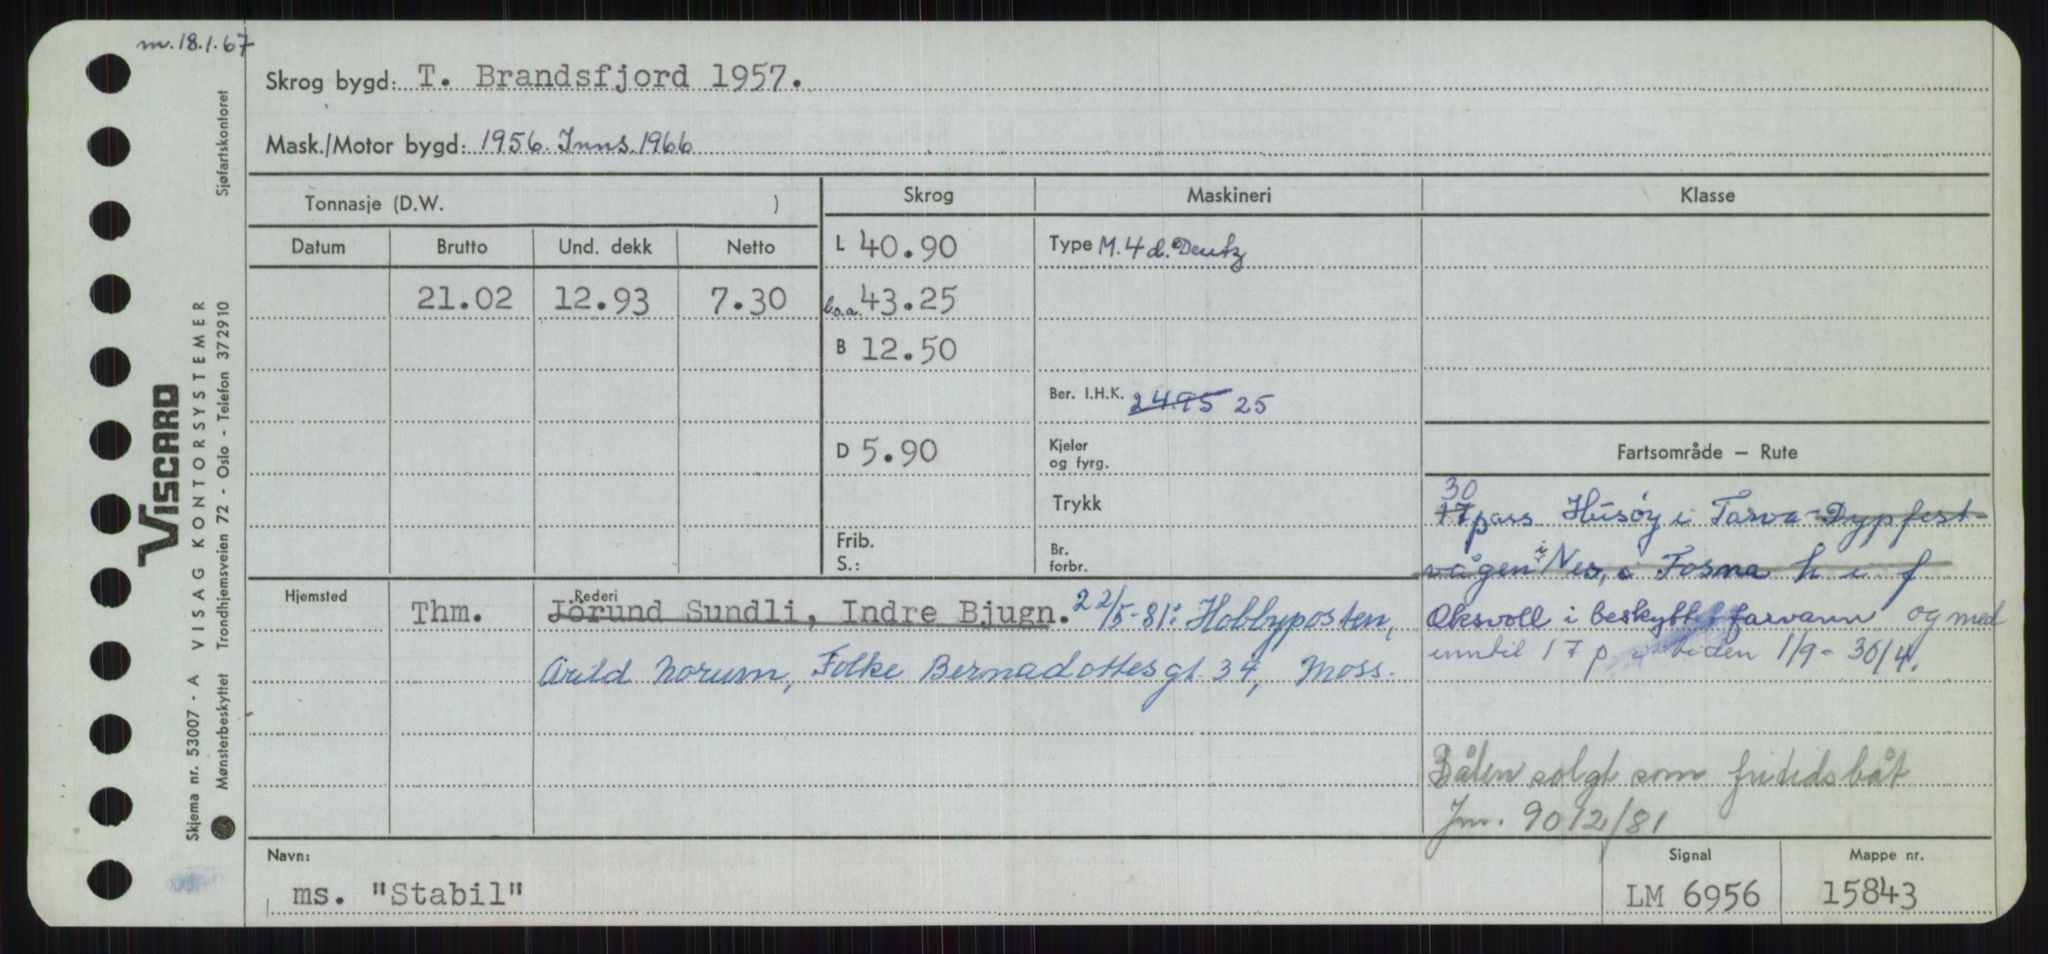 m. 18.1.67
Skrog bygd: T. Brandsfjord 1957.
Mask./Motor bygd: 1956. Inns. 1966
Tonnasje (D.W. )
Skrog
Maskineri
Klasse
Datum
Brutto
Und. dekk
Netto
L 40.90
Type M. 4 d. Deutz
21.02
12.93
7.30
b.o.a. 43.25
B 12.50
Ber. I.H.K. 2495 25
D 5.90
Kjeler
og fyrg.
Fartsområde – Rute
Trykk
Frib.
S.:
Br.
forbr.
30
17 pass Husøy i Tarva - Dypfest-
vågen i Nes, i Fosna h i f
Oksvoll i beskyttet farvann og med
inntil 17 p i tiden 1/9 - 30/4.
Båten solgt som fritidsbåt
Jnr. 9012/81
Hjemsted
Thm.
Rederi
Jörund Sundli, Indre Bjugn. 22/5-81: Hobbyposten,
Arild Norum, Folke Bernadottesgt. 34, Moss.
Navn:
ms. "Stabil"
Signal
LM 6956
Mappe nr.
15843
Viscard
VISAG KONTORSYSTEMER
Skjema nr. 53007 - A
Mønsterbeskyttet Trondhjemsveien 72 - Oslo - Telefon 372910
Sjøfartskontoret